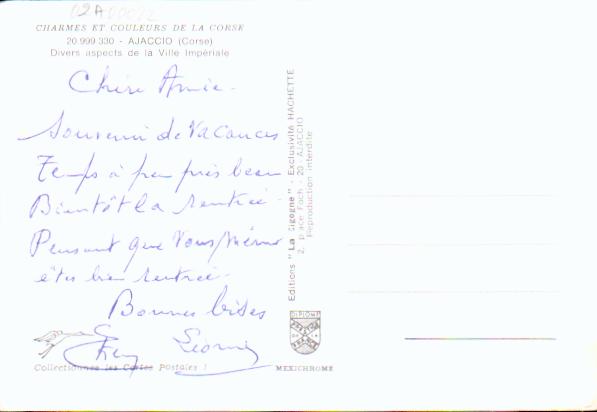 02A00022
CHARMES ET COULEURS DE LA CORSE
20.999.330 - AJACCIO (Corse)
Divers aspects de la Ville Impériale
Chère Amie -
Souvenir de Vacances
Temps à peu près beau
Bientôt la rentrée -
Pensant que Vous/même
êtes bien rentrée -
Bonnes bises
Collectionnez les Cartes Postales !
Editions "La Cigogne" - Exclusivité HACHETTE
2, place Foch - 20 - AJACCIO
Reproduction interdite
DIPLOME
PRESTIGE
FRANCE
MEXICHROME